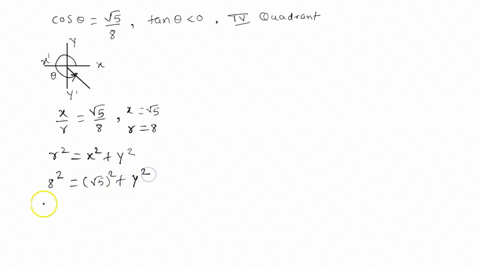 cosθ = √5/8 , tanθ < 0 . IV Quadrant
Y
x' x
θ
Y'
x/r = √5/8 , x = √5
r = 8
r² = x² + y²
8² = (√5)² + y²